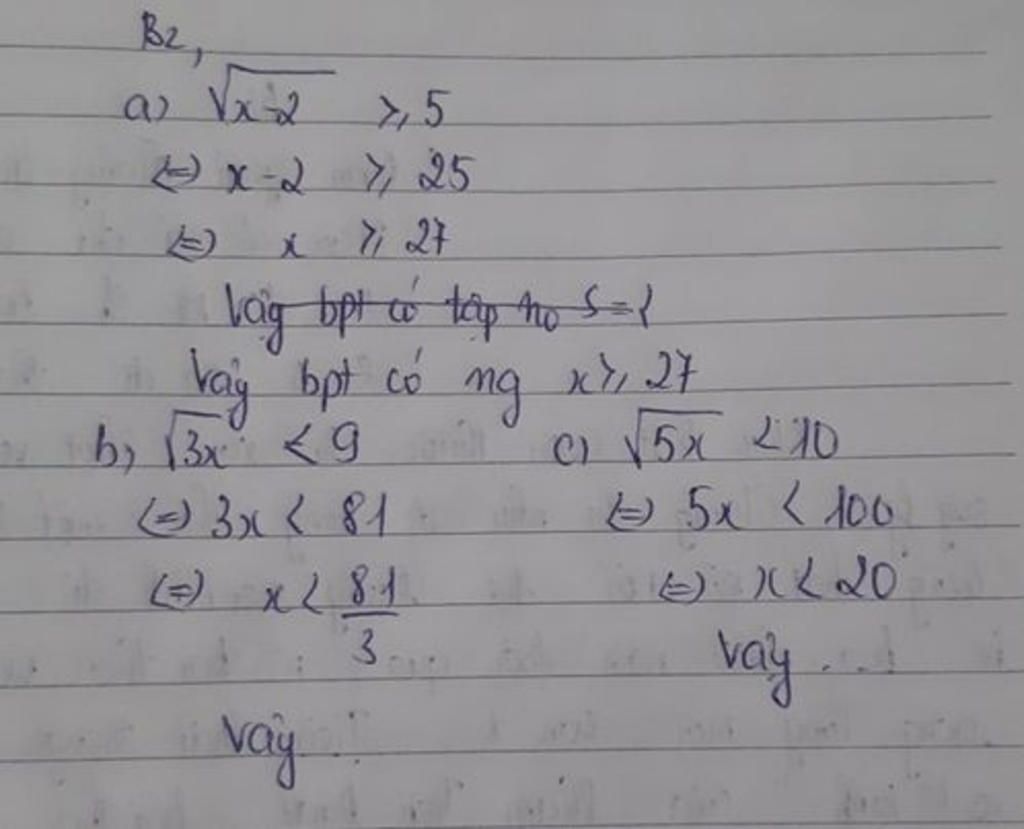 B2,
a) √x-2 ≥ 5
<=> x-2 ≥ 25
<=> x ≥ 27
Vậy bpt có tập no S={
Vậy bpt có ng x ≥ 27
b) √3x < 9
<=> 3x < 81
<=> x < 81/3
Vậy :
c) √5x < 10
<=> 5x < 100
<=> x < 20
Vậy ...